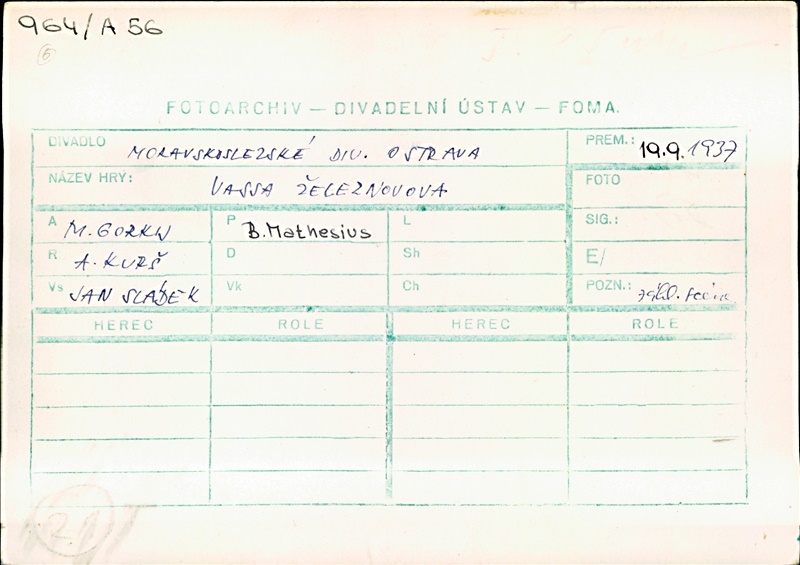 964/A 56
6
FOTOARCHIV — DIVADELNÍ ÚSTAV — FOMA.
DIVADLO MORAVSKOSLEZSKÉ DIV. OSTRAVA
PREM.: 19.9.1937
NÁZEV HRY: VASSA ŽELEZNOVOVA
FOTO
A M. GORKIJ P B. Mathesius L SIG.:
R A. KURŠ D Sh E/
Vs JAN SLÁDEK Vk Ch POZN.:
HEREC ROLE HEREC ROLE
21